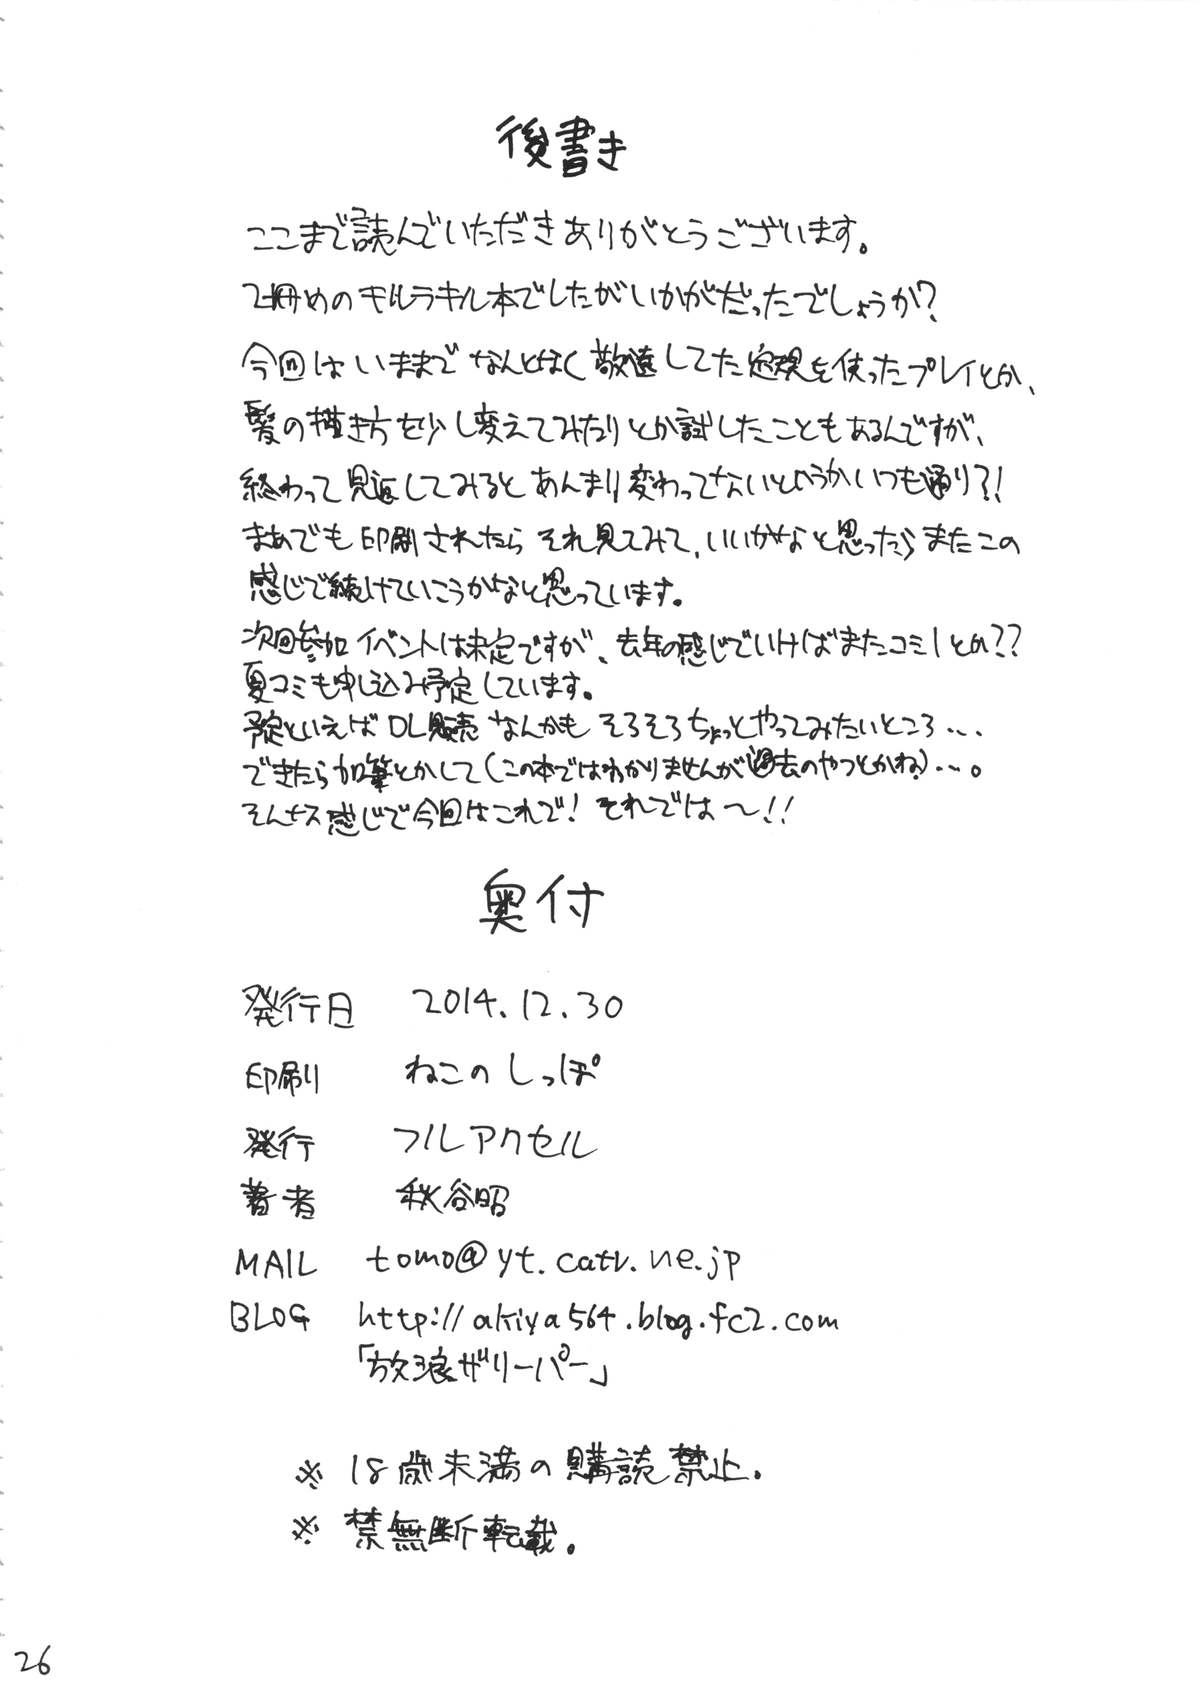 後書き
ここまで読んでいただきありがとうございます。
2冊めのキルラキル本でしたがいかがだったでしょうか?
今回はいままでなんとなく敬遠してた定規を使ったプレイとか、
髪の描き方を少し変えてみたりとか試したこともあるんですが、
終わって見返してみるとあんまり変わってないというかいつも通り?!
まあでも印刷されたらそれ見てみて、いいかなと思ったらまたこの
感じで続けていこうかなと思っています。
次回参加イベントは未定ですが、去年の感じでいけばまたコミ1とか??
夏コミも申し込み予定しています。
予定といえばDL販売なんかもそろそろちょっとやってみたいところ...
できたら加筆とかして(この本ではわかりませんが過去のやつとかね)...。
そんナス感じで今回はこれで!それでは〜!!
奥付
発行日 2014.12.30
印刷 ねこのしっぽ
発行 フルアクセル
著者 秋谷昭
MAIL tomo@yt.catv.ne.jp
BLOG http://akiya564.blog.fc2.com
「放浪ザリーパー」
※18歳未満の購読禁止。
※禁無断転載。
26